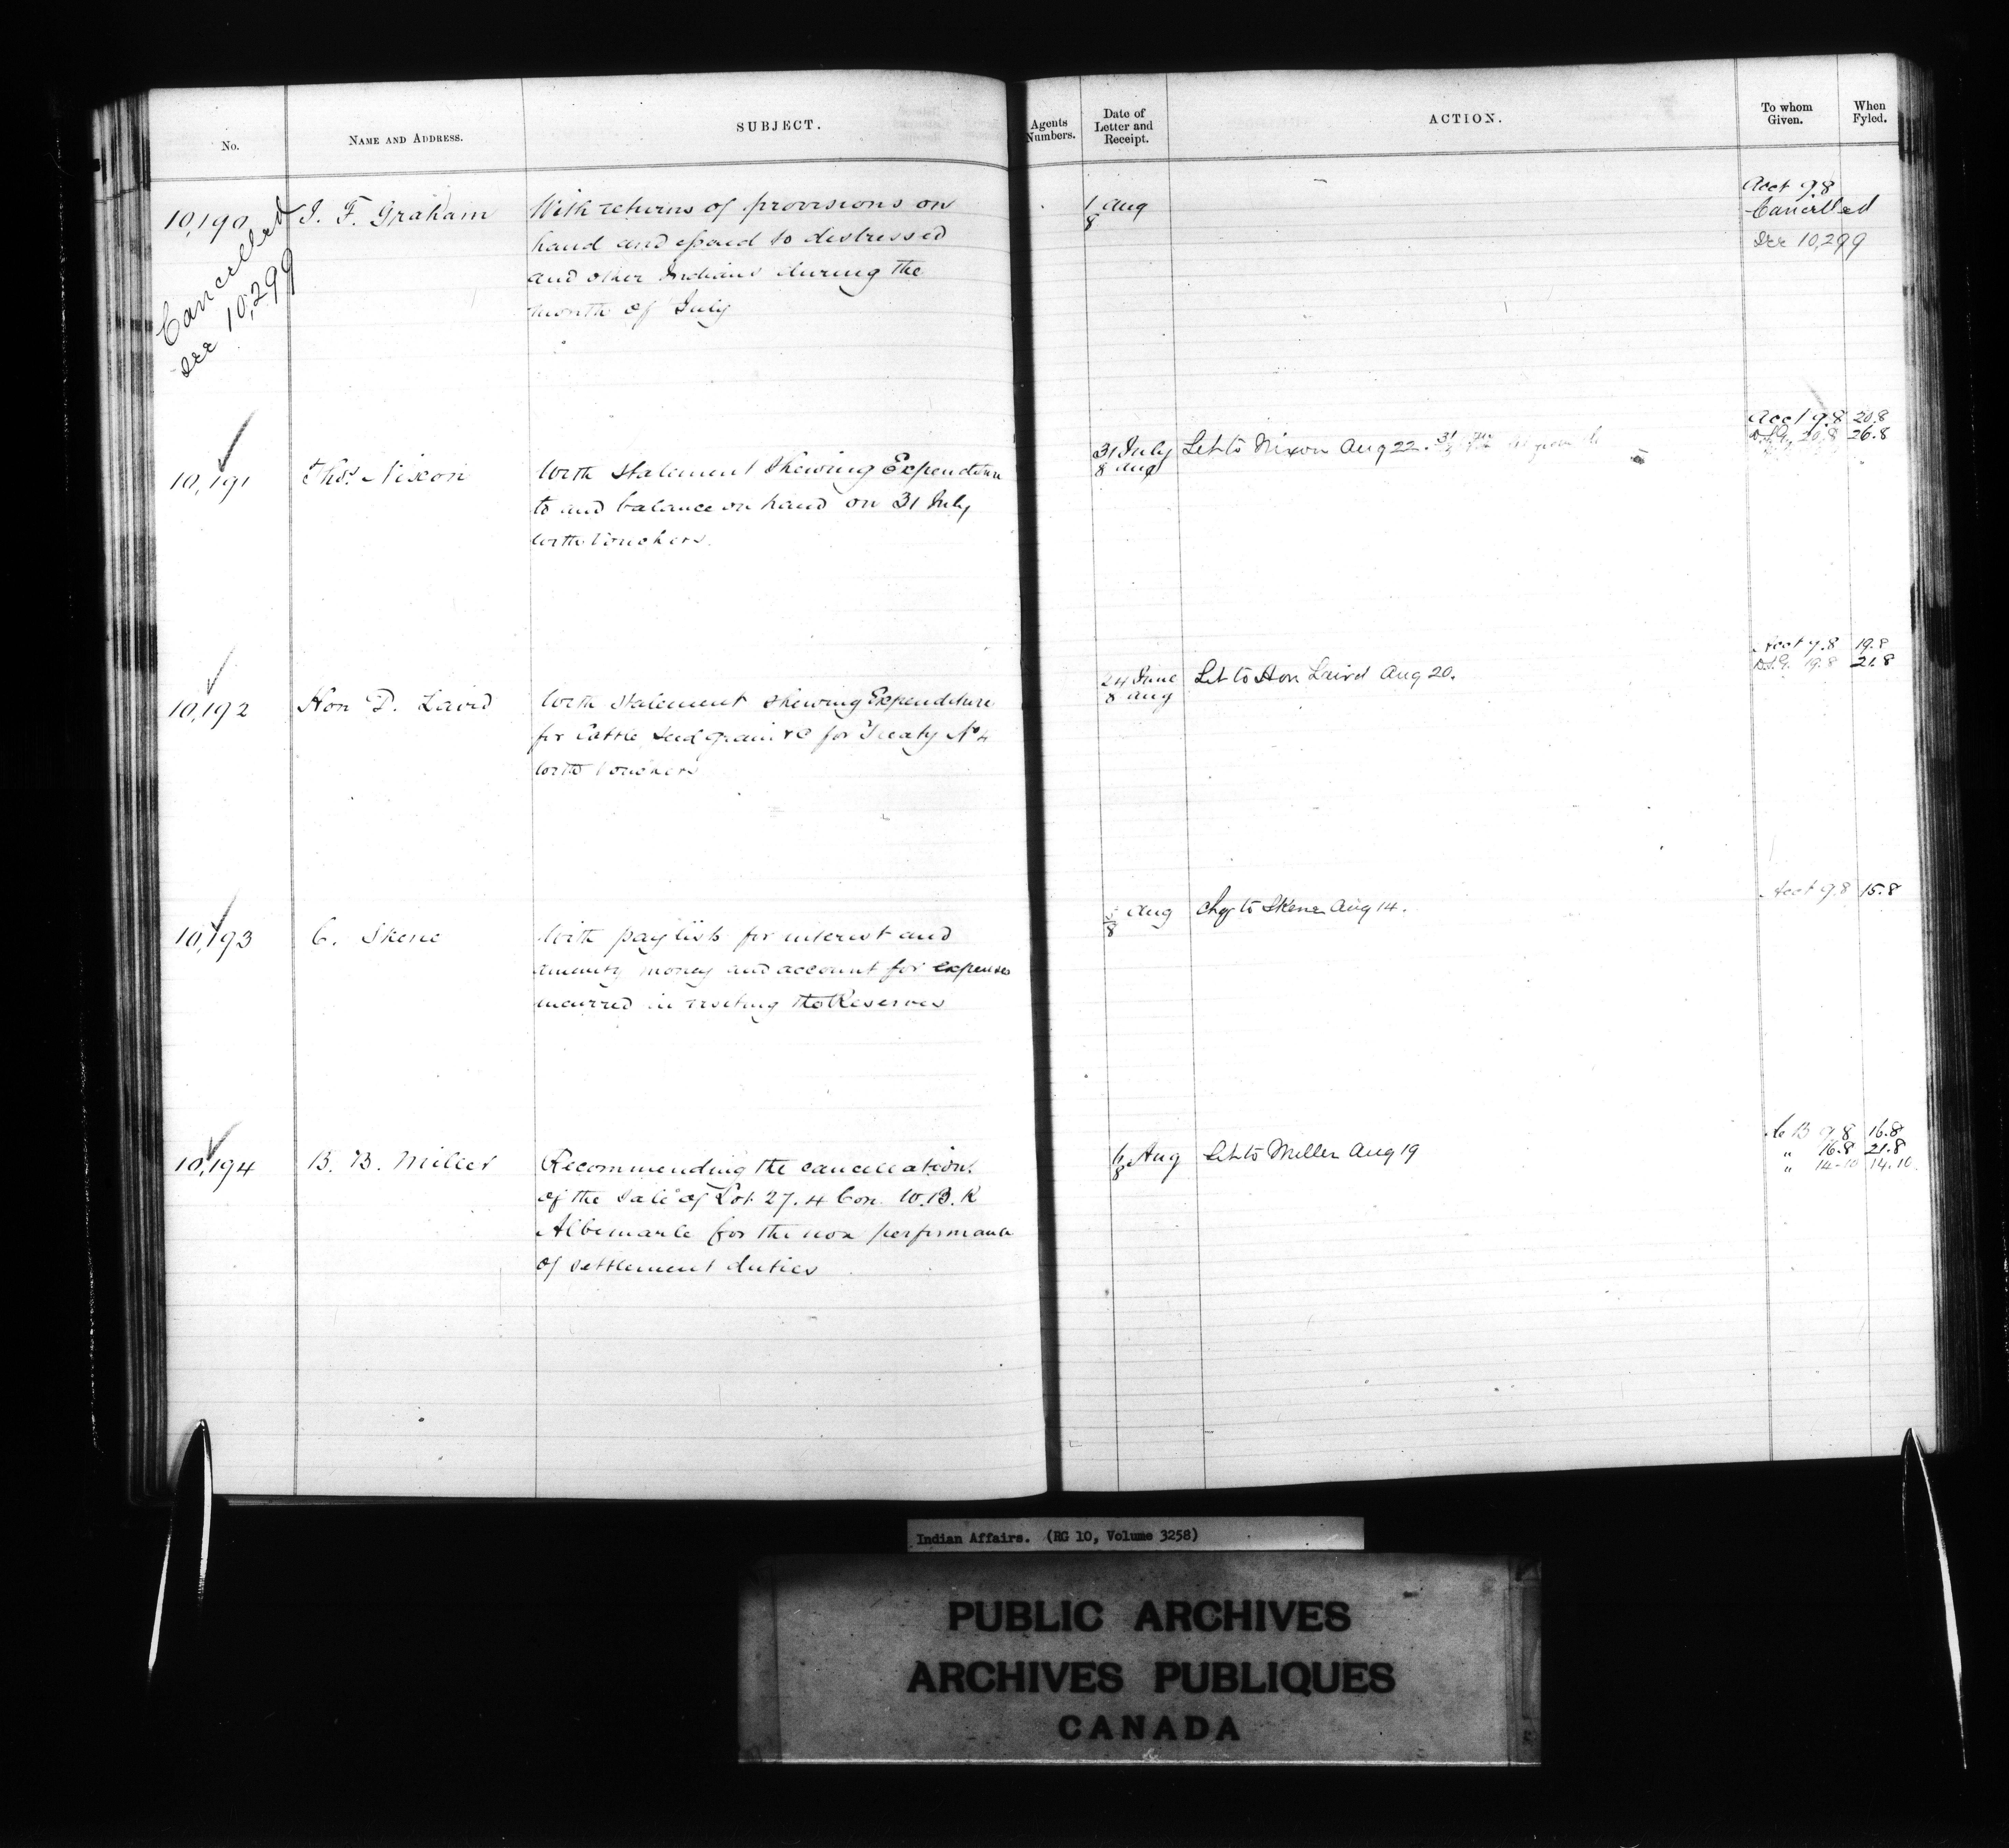 No.
NAME AND ADDRESS.
SUBJECT.
Agents Numbers.
Date of Letter and Receipt.
ACTION.
To whom Given.
When Fyled.
10,190
Cancelled
see 10,299
J. F. Graham
With returns of provisions on
hand and to distressed
and other Indians during the
month of July
1 Aug
8
Acct 9.8
Cancelled
see 10,299
10,191
Thos. Nixon
With Statement Shewing Expenditure
to and balance on hand on 31 July
with vouchers.
31 July
8 Aug
Let to Nixon Aug 22.
Acct 9.8 20.8
D.S.G. 20.8 26.8
10,192
Hon D. Laird
With Statement Shewing Expenditure
for Cattle Seed grain &c for Treaty No 4
with vouchers
24 June
8 Aug
Let to Hon Laird Aug 20.
Acct 9.8 19.8
D.S.G. 19.8 21.8
10,193
C. Skene
With pay lists for interest and
annuity money and account for expenses
incurred in visiting the Reserves
Aug
8
Chq to Skene Aug 14.
Acct 9.8 15.8
10,194
B. B. Miller
Recommending the cancellation
of the sale of Lot 27. 4 Con. W.B.R
Albemarle for the non performance
of settlement duties
6 Aug
8
Let to Miller Aug 19
C B 9.8 16.8
" 16.8 21.8
" 14.10 14.10.
Indian Affairs. (RG 10, Volume 3258)
PUBLIC ARCHIVES
ARCHIVES PUBLIQUES
CANADA